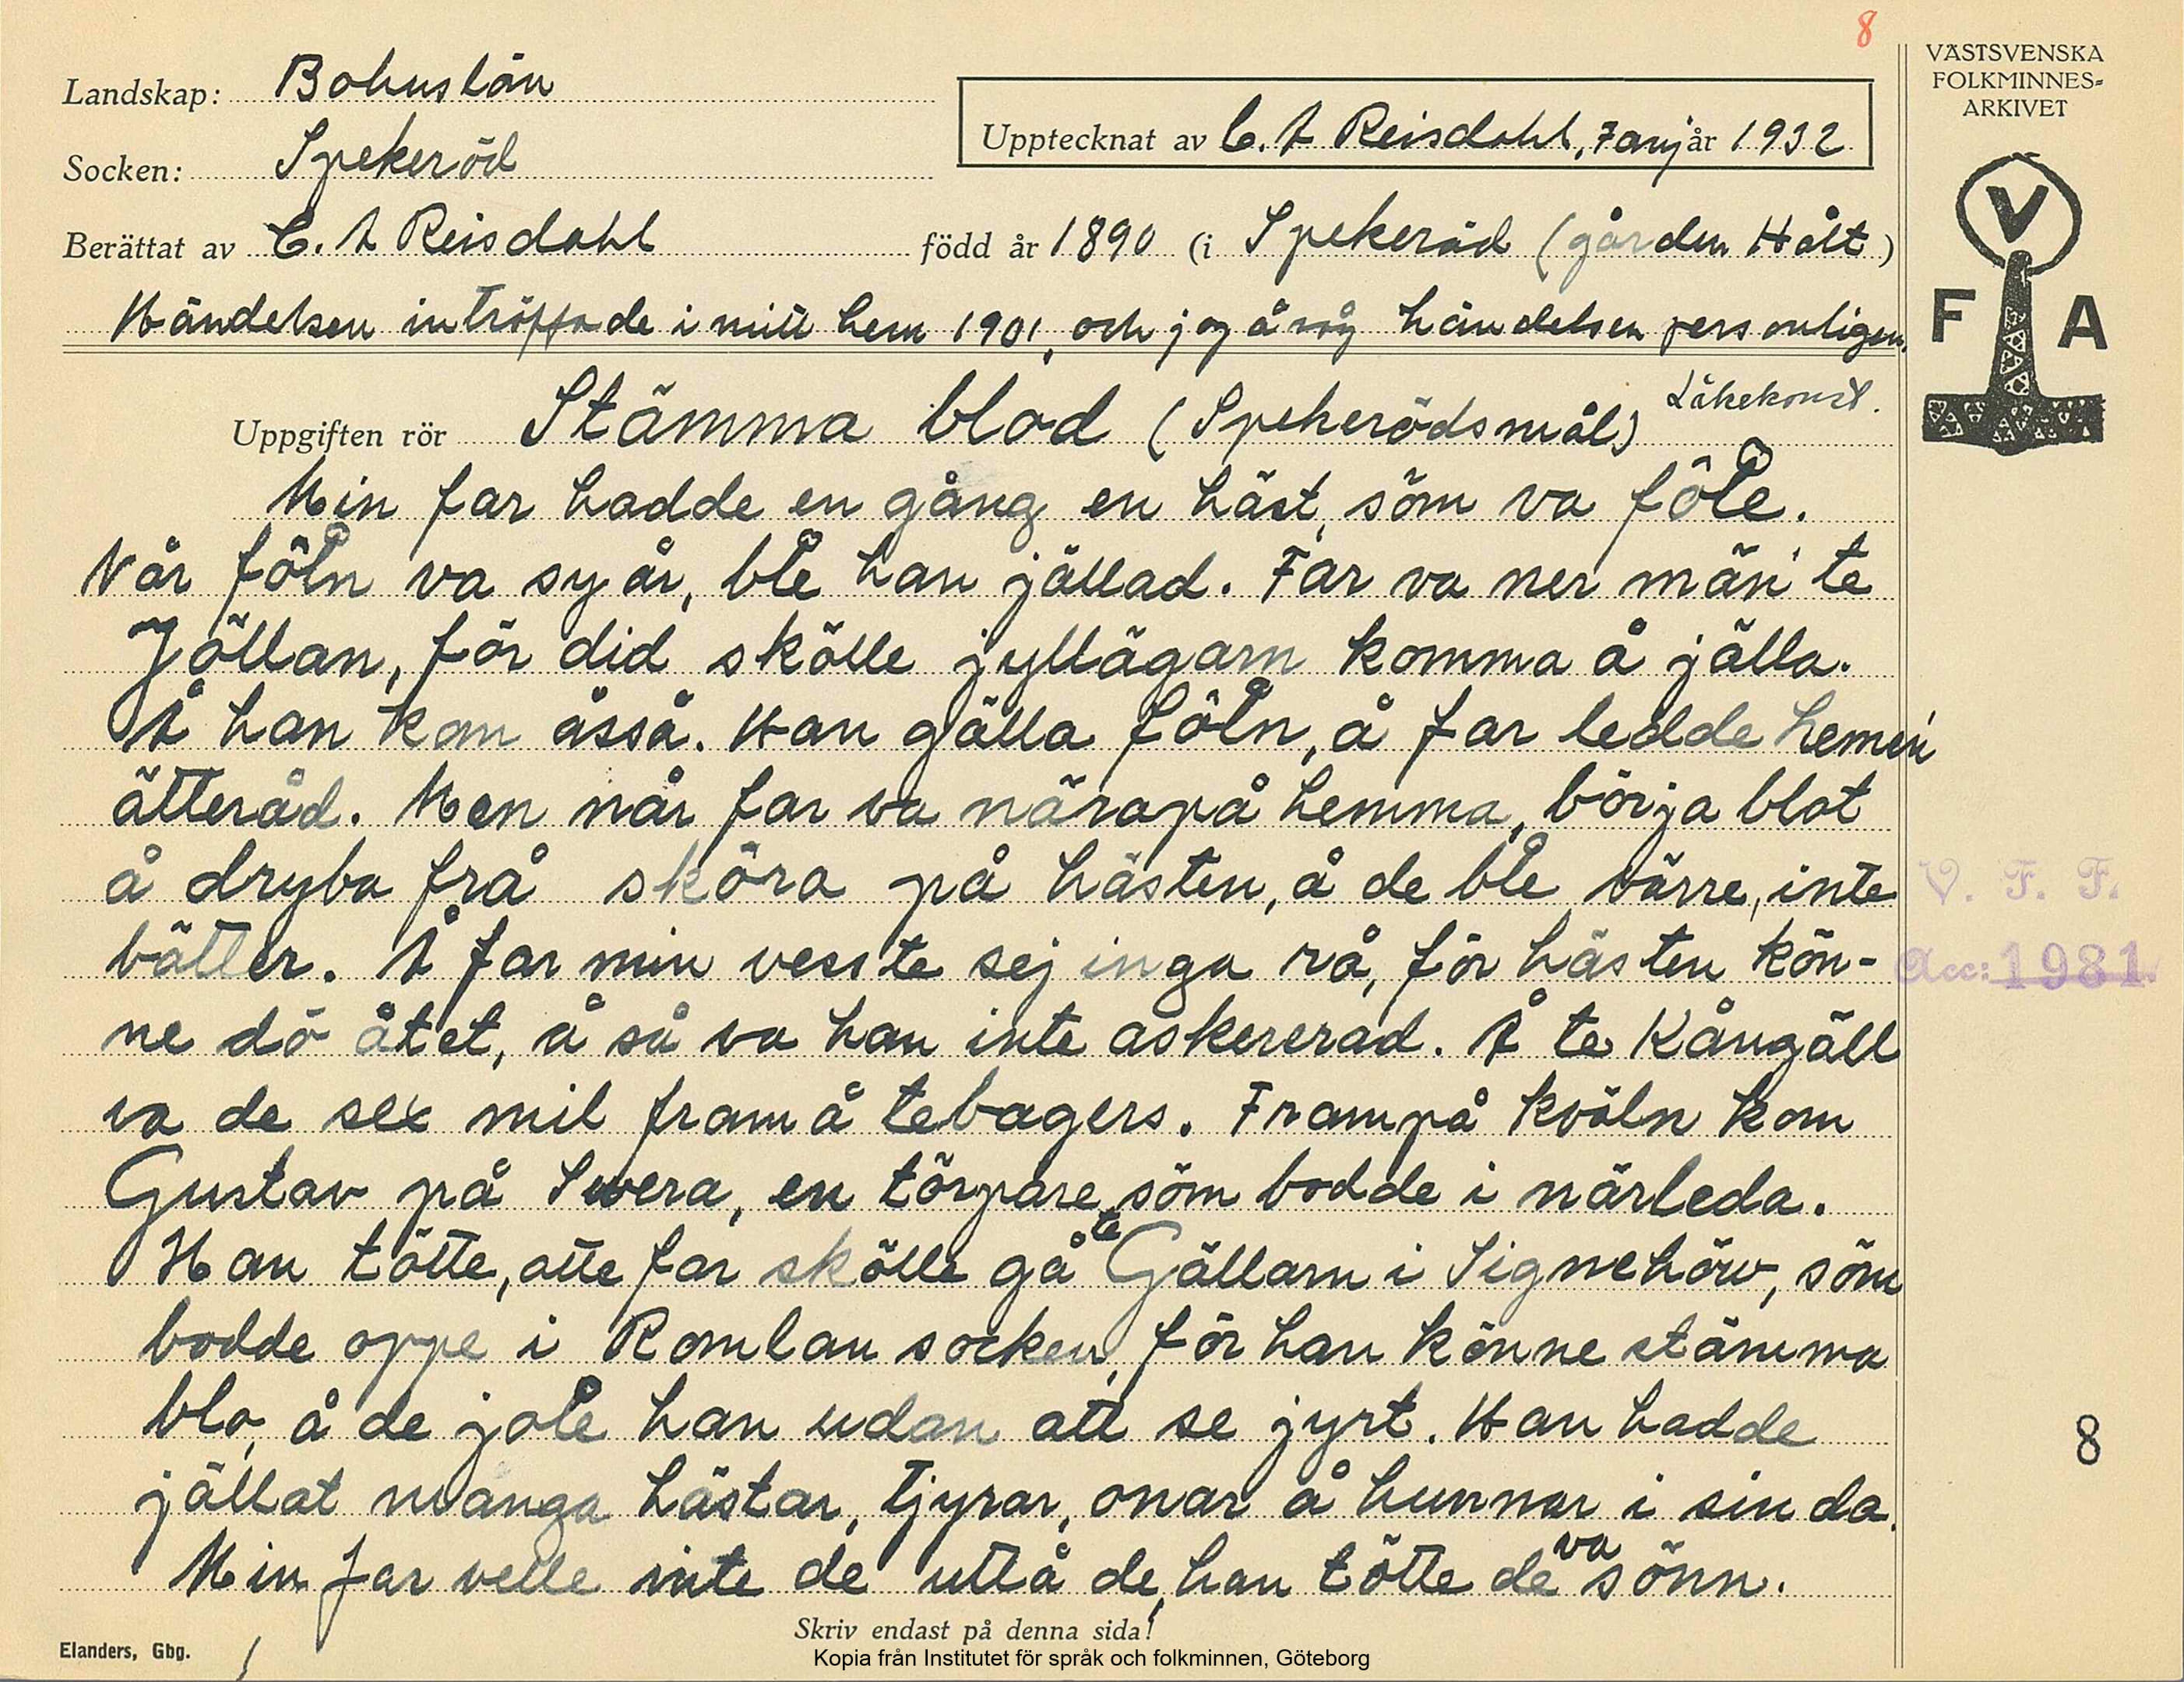 8
VÄSTSVENSKA
FOLKMINNES=
ARKIVET
Landskap: Bohuslän
Upptecknat av C. A Reisdahl, Janj år 1932
Socken: Spekeröd
Berättat av C. A Reisdahl född år 1890 (i Spekeröd (gården Hålt)
Händelsen inträffade i mitt hem 1901, och jag åsåg händelsen personligen.
V
F A
Uppgiften rör Stämma blod (Spekerödsmål) Läkekonst.
Min far hadde en gång en häst, söm va föle.
Når föln va sy år, ble han jällad. Far va ner män te
Jöllan, för did skölle jyllägarn komma å jälla.
Å han kom åsså. Han gälla föln, å far ledde hemen
ätteråd. Men når far va närapå hemma, börja blot
å dryba frå sköra på hästen, å de ble värre, inte
bätter. Å far min vesste sej inga rå, för hästen kön-
ne dö åtet, å så va han inte askererad. Å te Kångäll
va de sex mil fram å tebagers. Frampå kväln kom
Gustav på Svera, en törpare söm bodde i närleda.
Han tötte, atte far skölle gå te Gällarn i Signehöw, söm
bodde oppe i Romlan socken, för han könne stämma
blo, å de jole han udan att se jyrt. Han hadde
jällat manga hästar, tjyrar, onar å hunnar i sin da.
Min far velle inte de uttå de, han tötte de va sönn.
V. F. F.
Acc: 1981
8
Skriv endast på denna sida!
Elanders, Gbg.
Kopia från Institutet för språk och folkminnen, Göteborg